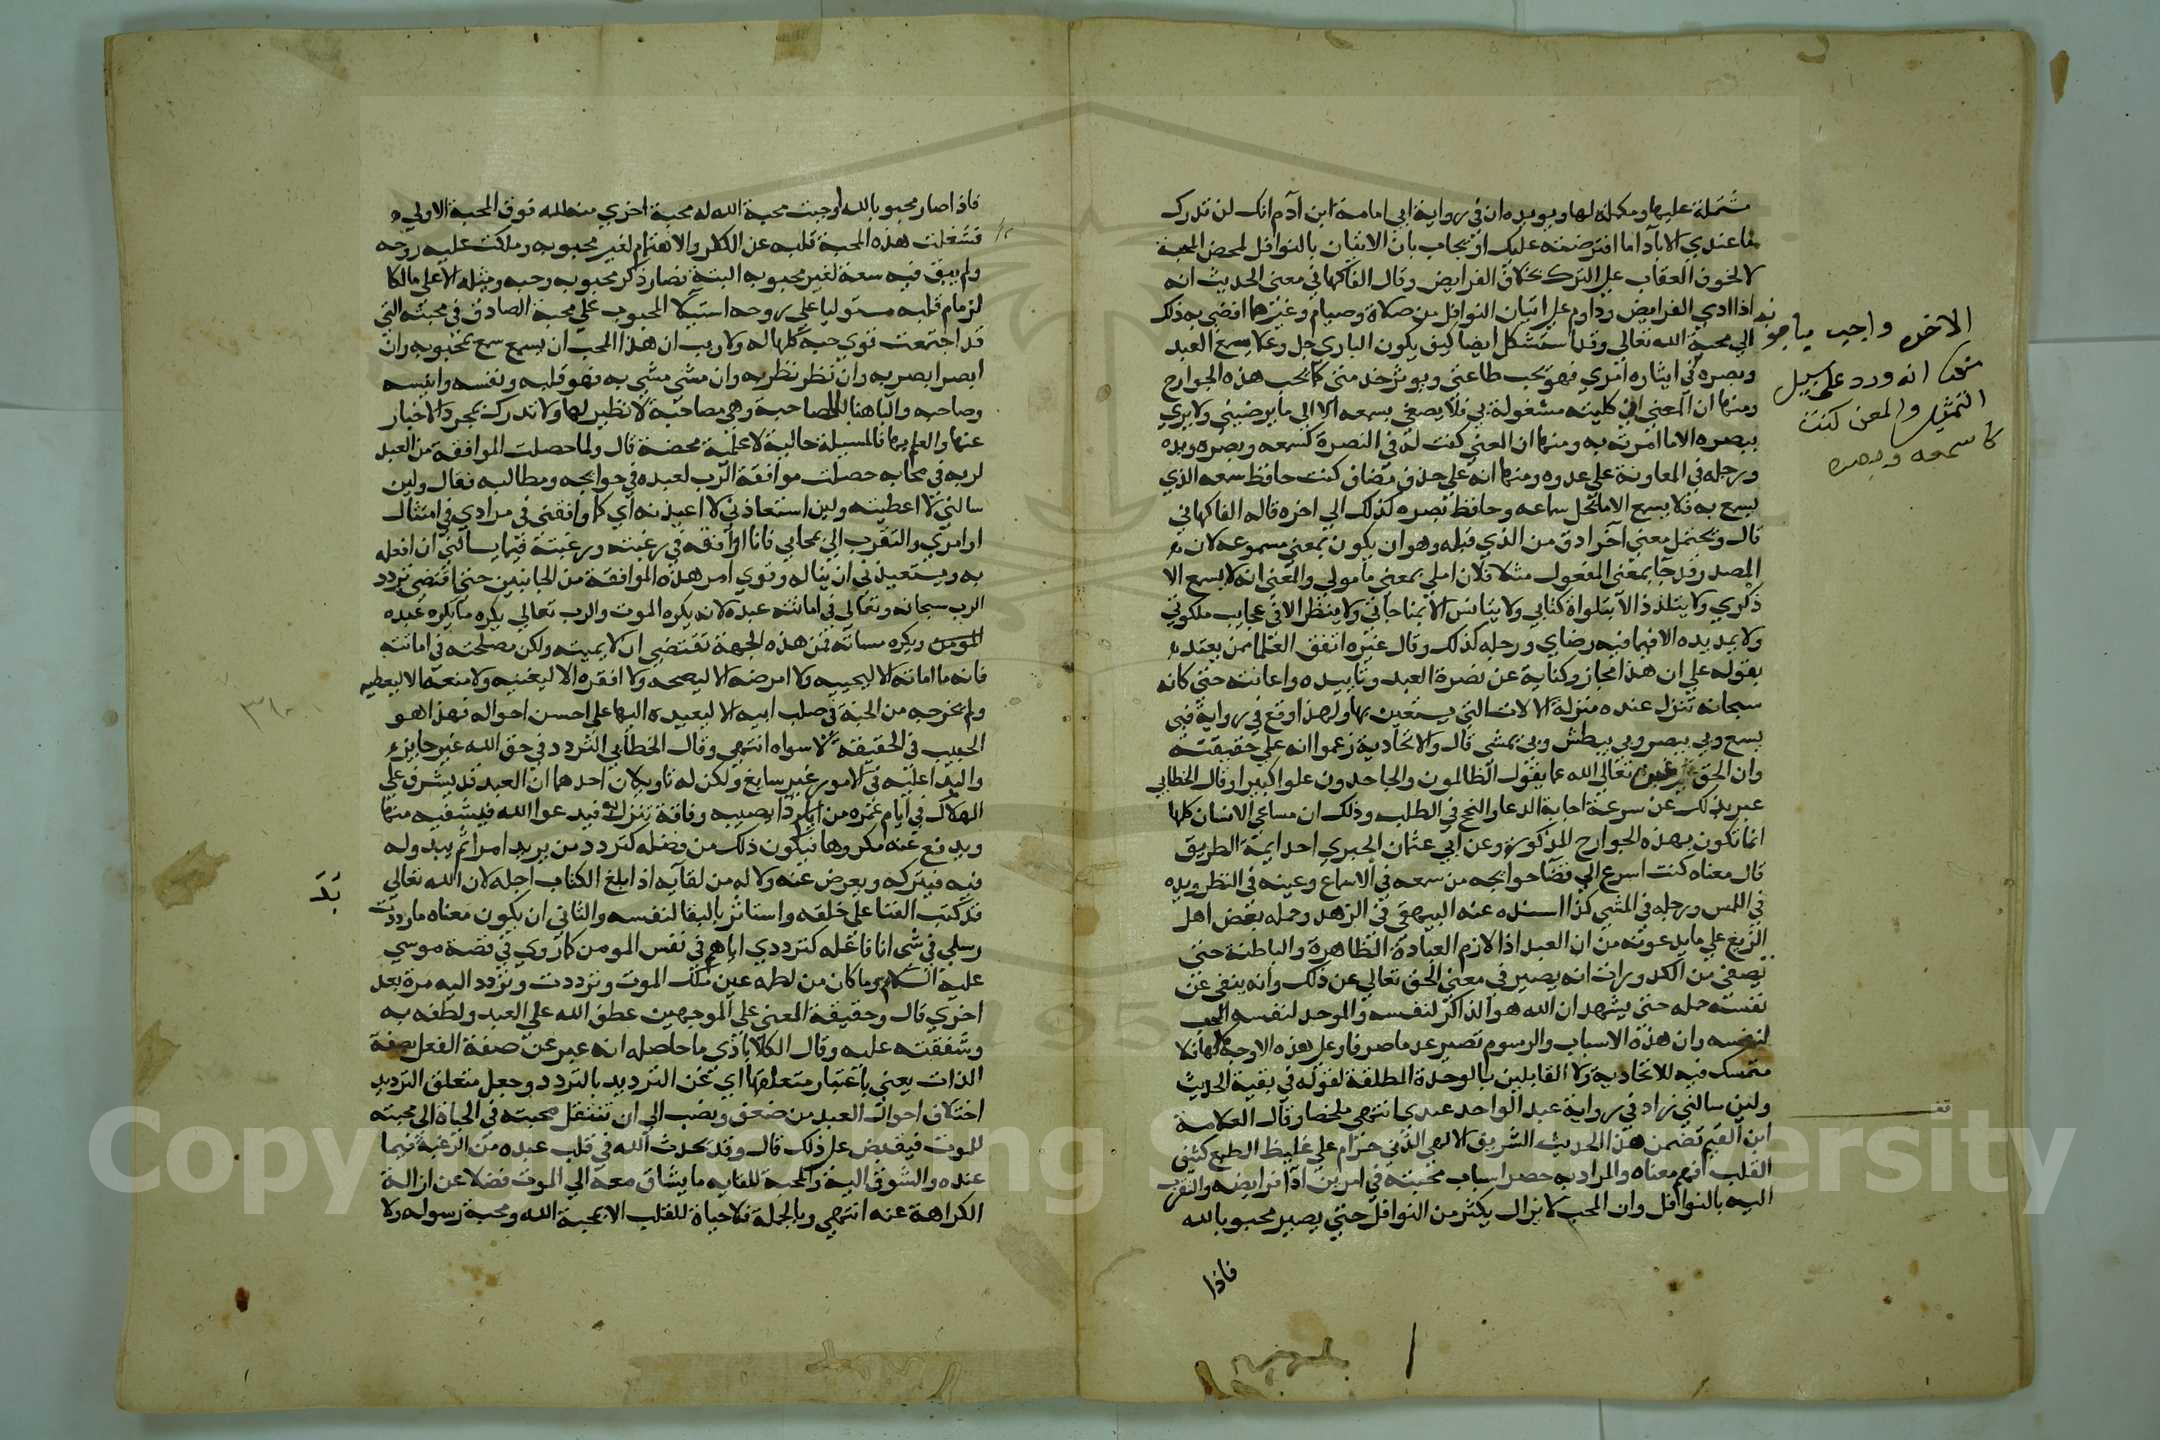 مشتملة عليها ومكملة لها ويويده ان في رواية ابي امامة ابن آدم انك لن تدرك
ما عندي الا باداما افترضته عليك او يجاب بان الاتيان بالنوافل لمحض المحبة
لا لخوف العقاب على الترك بخلاف الفرايض وقال الفاكهاني معنى الحديث انه
اذا ادي الفرايض وداوم على اتيان النوافل من صلاة وصيام وغيرهما افضي به ذلك
الي محبة الله تعالي وقد استشكل ايضا كيف يكون الباري جل وعلا سمع العبد
وبصره في ايثاره امري فهو يحب طاعتي ويوثر خدمتي كما يحب هذه الجوارح
ومنها ان المعني ان كليته مشغولة بي فلا يصغي بسمعه الا الي ما يرضيني ولا يري
ببصره الا ما امرته به ومنها ان المعني كنت له في النصرة كسمعه وبصره ويده
ورجله في المعاونة علي عدوه ومنها انه علي حذف مضاف كنت حافظ سمعه الذي
يسمع به فلا يسمع الا ما يحل سماعه وحافظ بصره كذلك الي اخره قاله الفاكهاني
قال ويحتمل معني آخر ادق من الذي قبله وهو ان يكون بمعني مسموعه لان
المصدر قد جا بمعني المفعول مثلا فلان املي بمعني مامولي والمعني انه لا يسمع الا
ذكري ولا يتلذذ الا بتلاوة كتابي ولا يتانس الا بمناجاتي ولا ينظر الا في عجايب ملكوتي
ولا يمد يده الا فيما فيه رضاي ورجله كذلك وقال غيره اتفق العلما ممن يعتد
بقوله علي ان هذا مجاز وكناية عن نصرة العبد وتاييده واعانته حتي كانه
سبحانه تنزل عنده منزلة الالات التي يستعين بها ولهذا وقع في رواية فبي
يسمع وبي يبصر وبي يبطش وبي يمشي قال والاتحادية زعموا انه علي حقيقته
وان الحق عين تعالي الله عما يقول الظالمون والجاحدون علوا كبيرا وقال الخطابي
عبر بذلك عن سرعة اجابة الدعا والنجح في الطلب وذلك ان مساعي الانسان كلها
انما تكون بهذه الجوارح المذكورة وعن ابي عثمان الحبري احد ايمة الطريق
قال معناه كنت اسرع الي قضا حوايجه من سمعه في الاسماع وعينه في النظر ويده
في اللمس ورجله في المشي كذا اسنده عنه البيهقي في الزهد وحمله بعض اهل
الزيغ علي ما يدعونه من ان العبد اذا لازم العبادة الظاهرة والباطنة حتي
يصفي من الكدورات انه يصير في معني الحق تعالي عن ذلك وانه يفني عن
نفسه جمله حتي يشهد ان الله هو الذاكر لنفسه والموحد لنفسه المحب
لنفسه وان هذه الاسباب والرسوم تصير عدما صرفا وعلي هذه الاوجه كلها فلا
متمسك فيه للاتحادية ولا القايلين بالوحدة المطلقة لقوله في بقية الحديث
ولين سالني زاد في رواية عبد الواحد عبدي انتهي ملخصا وقال العلامة
ابن القيم تضمن هذا الحديث الشريف الالهي الذي حرام علي غليظ الطبع كثيف
القلب فهم معناه والمراد به حصر اسباب محبته في امرين ادا فرايضه والتقرب
اليه بالنوافل وان المحب لا يزال يكثر من النوافل حتي يصير محبوبا لله
فاذا
الاخره واجيب باجوبة
منها انه ورد علي سبيل
التمثيل والمعني كنت
كاسمعه وبصره
فاذا صار محبوبا لله اوجبت محبة الله له محبة اخري منه لله فوق المحبة الاولي
فشغلت هذه المحبة قلبه عن الفكر والاهتمام لغير محبوبه وملكت عليه روحه
ولم يبق فيه سعة لغير محبوبه البتة فصار ذكر محبوبه وحبه ومثله الاعلي مالكا
لزمام قلبه مستوليا علي روحه استيلا المحبوب علي محبة الصادق في محبته التي
قد اجتمعت قوي حبه كلها له ولا ريب ان هذا المحب ان يسمع سمع بمحبوبه وان
ابصر ابصر به وان نظر نظر به وان مشي مشي به فهو قلبه ونفسه وانيسه
وصاحبه والبا هنا للمصاحبة وهي مصاحبة لا نظير لها ولا تدرك بمجرد الاخبار
عنها والعلم بها فالمسيلة حالية لا علمية محضة قال ولما حصلت الموافقة من العبد
لربه في محابه حصلت موافقة الرب لعبده في حوايجه ومطالبه فقال ولين
سالني لاعطينه ولين استعاذني لاعيذنه اي كما وافقني في مرادي في امتثال
اوامري والتقرب الي بمحابي فانا اوافقه في رغبته ورهبته فيما يسالني ان افعله
به ويستعيذني ان يناله وقوي امر هذه الموافقة من الجانبين حتي اقتضي تردد
الرب سبحانه وتعالي في اماتته عبده لانه يكره الموت والرب تعالي يكره ما يكره عبده
المومن ويكره مساته فمن هذه الجهة تقتضي ان لا يميته ولكن مصلحته في اماتته
فانه ما اماته الا ليحييه ولا امرضه الا ليصحه ولا افقره الا ليغنيه ولا منعه الا ليعطيه
ولم يخرجه من الجنة في صلب ابيه الا ليعيده اليها علي احسن احواله فهذا هو
الحبيب في الحقيقة لا سواه انتهي وقال الخطابي التردد في حق الله غير جايز
والبدا عليه في الامور غير سايغ ولكن له تاويلان احدهما ان العبد قد يشرف علي
الهلاك في ايام عمره من دا يصيبه وفاقة تنزل به فيدعوا الله فيشفيه منها
ويدفع عنه مكروهها فيكون ذلك من فضله كتردد من يريد امرا ثم يبدو له
فيه فيتركه ويعرض عنه ولا له من لقايه اذا بلغ الكتاب اجله لان الله تعالي
قد كتب الفنا علي خلقه واستاثر بالبقا لنفسه والثاني ان يكون معناه ما رددت
رسلي في شي انا فاعله كترددي اياهم في نفس المومن كما روي في قصة موسي
عليه السلام وما كان من لطمه عين ملك الموت وترددت وتردد اليه مرة بعد
اخري قال وحقيقة المعني علي الوجهين عطف الله علي العبد ولطفه به
وشفقته عليه وقال الكلاباذي ما حاصله انه عبر عن صفة الفعل بصفة
الذات يعني باعتبار متعلقها اي عن الترديد بالتردد وجعل متعلق الترديد
اختلاف احوال العبد من ضعف ونصب الي ان تنتقل محبته في الحياة الي محبته
للموت فيقبض علي ذلك قال وقد يحدث الله في قلب عبده من الرغبة فيما
عنده والشوق اليه والمحبة للقايه ما يشتاق معه الي الموت فضلا عن ازالة
الكراهة عنه انتهي وبالجملة فلا حياة للقلب الا بمحبة الله ومحبة رسوله ولا
بَدَ
Copy
ng S
versity